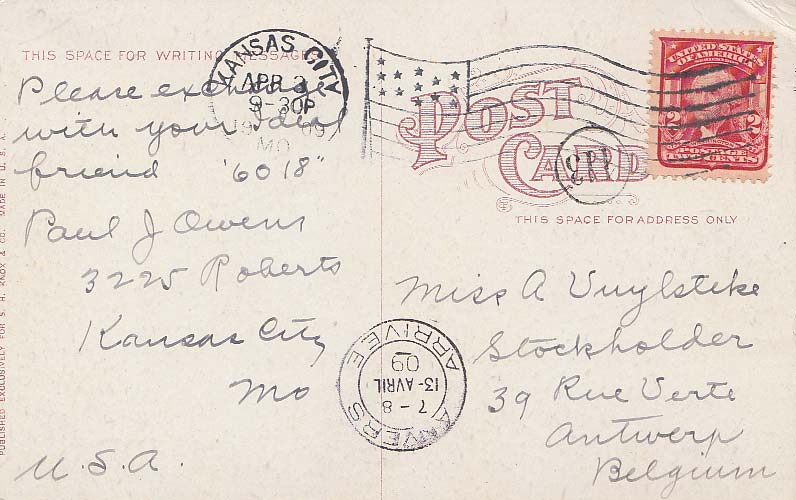 THIS SPACE FOR WRITING MESSAGE
KANSAS CITY
APR 3
9-30P
1909
MO
POST
CARD
UNITED STATES
OF AMERICA
2 2
POSTAGE
CENTS
THIS SPACE FOR ADDRESS ONLY
Please exchange
with your Ideal
friend "6018"
Paul J Owens
3225 Roberts
Kansas City
Mo
U.S.A.
Miss A Vuylsteke
Stockholder
39 Rue Verte
Antwerp
Belgium
ANVERS
7-8
13-AVRIL
09
ARRIVEE
PUBLISHED EXCLUSIVELY FOR S. H. KNOX & CO. MADE IN U. S. A.